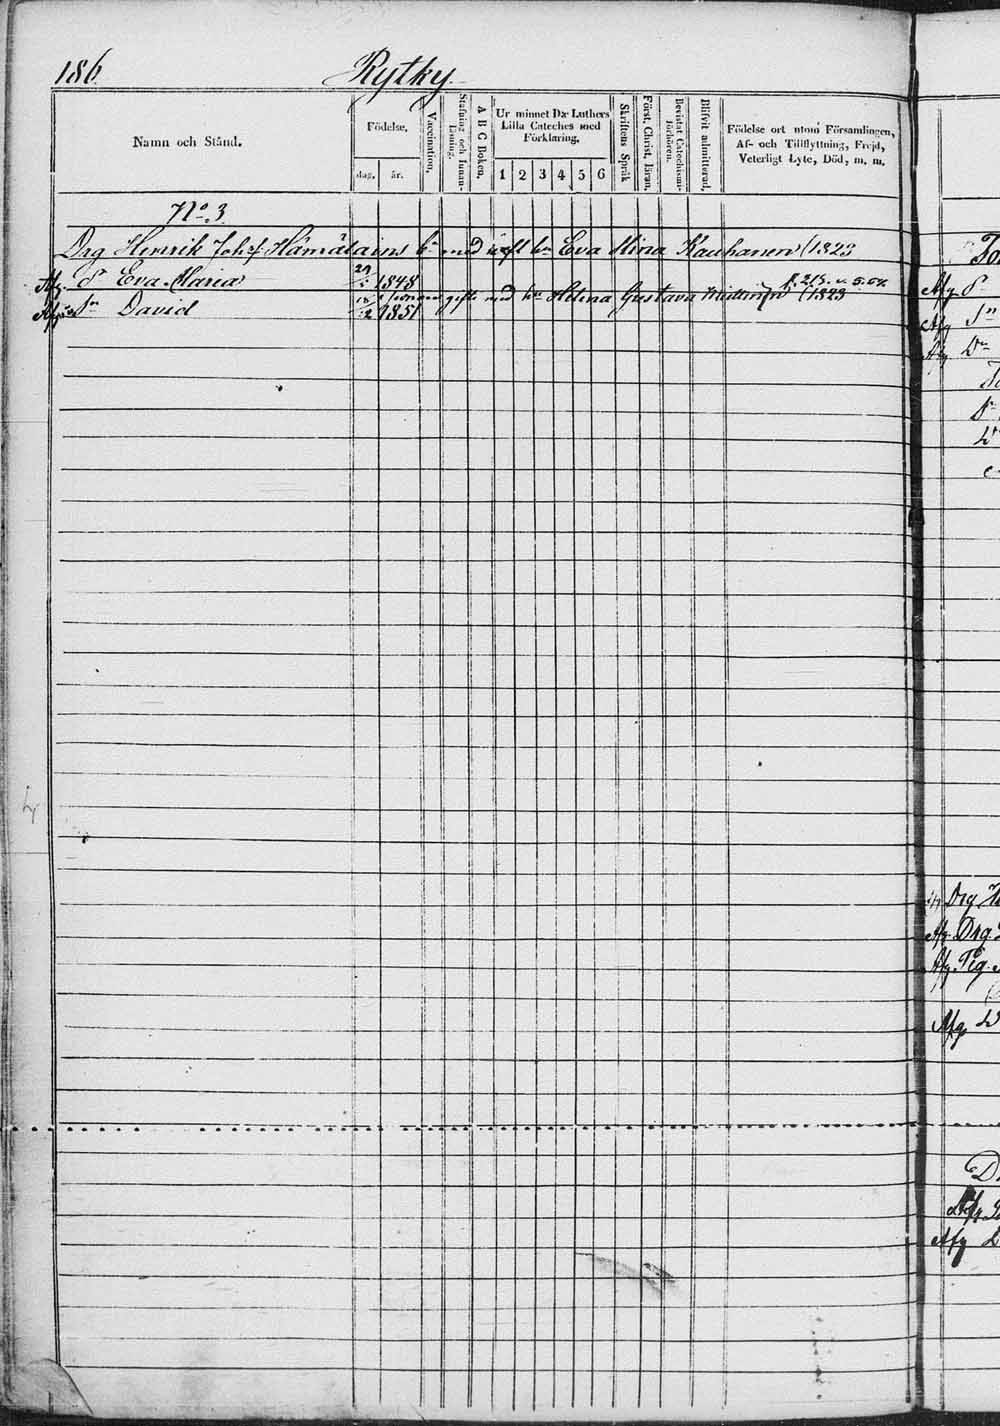 186.
Rytky.
Namn och Stånd.
Födelse.
dag.
år.
Vaccination.
Stafning och Innan-Läsning.
A B C Boken.
Ur minnet Dr Luthers Lilla Cateches med Förklaring.
1 2 3 4 5 6
Skriftens Språk
Först. Christ. läran.
Bevistat Catechismi-förhören.
Blifvit admitterad.
Födelse ort utom Församlingen,
Af- och Tillflyttning, Frejd,
Veterligt Lyte, Död, m. m.
No 3.
Drg Henrik Johsf Hämäläins br med Eva Stina Kauhanen (1823
Afg. d Eva Maria 1848
gifte med Helena Gustava 1823
Sn David 1851
Afg
Afg
Afg
Drg
Afg. Drg
Afg. Pig.
Afg
Afg